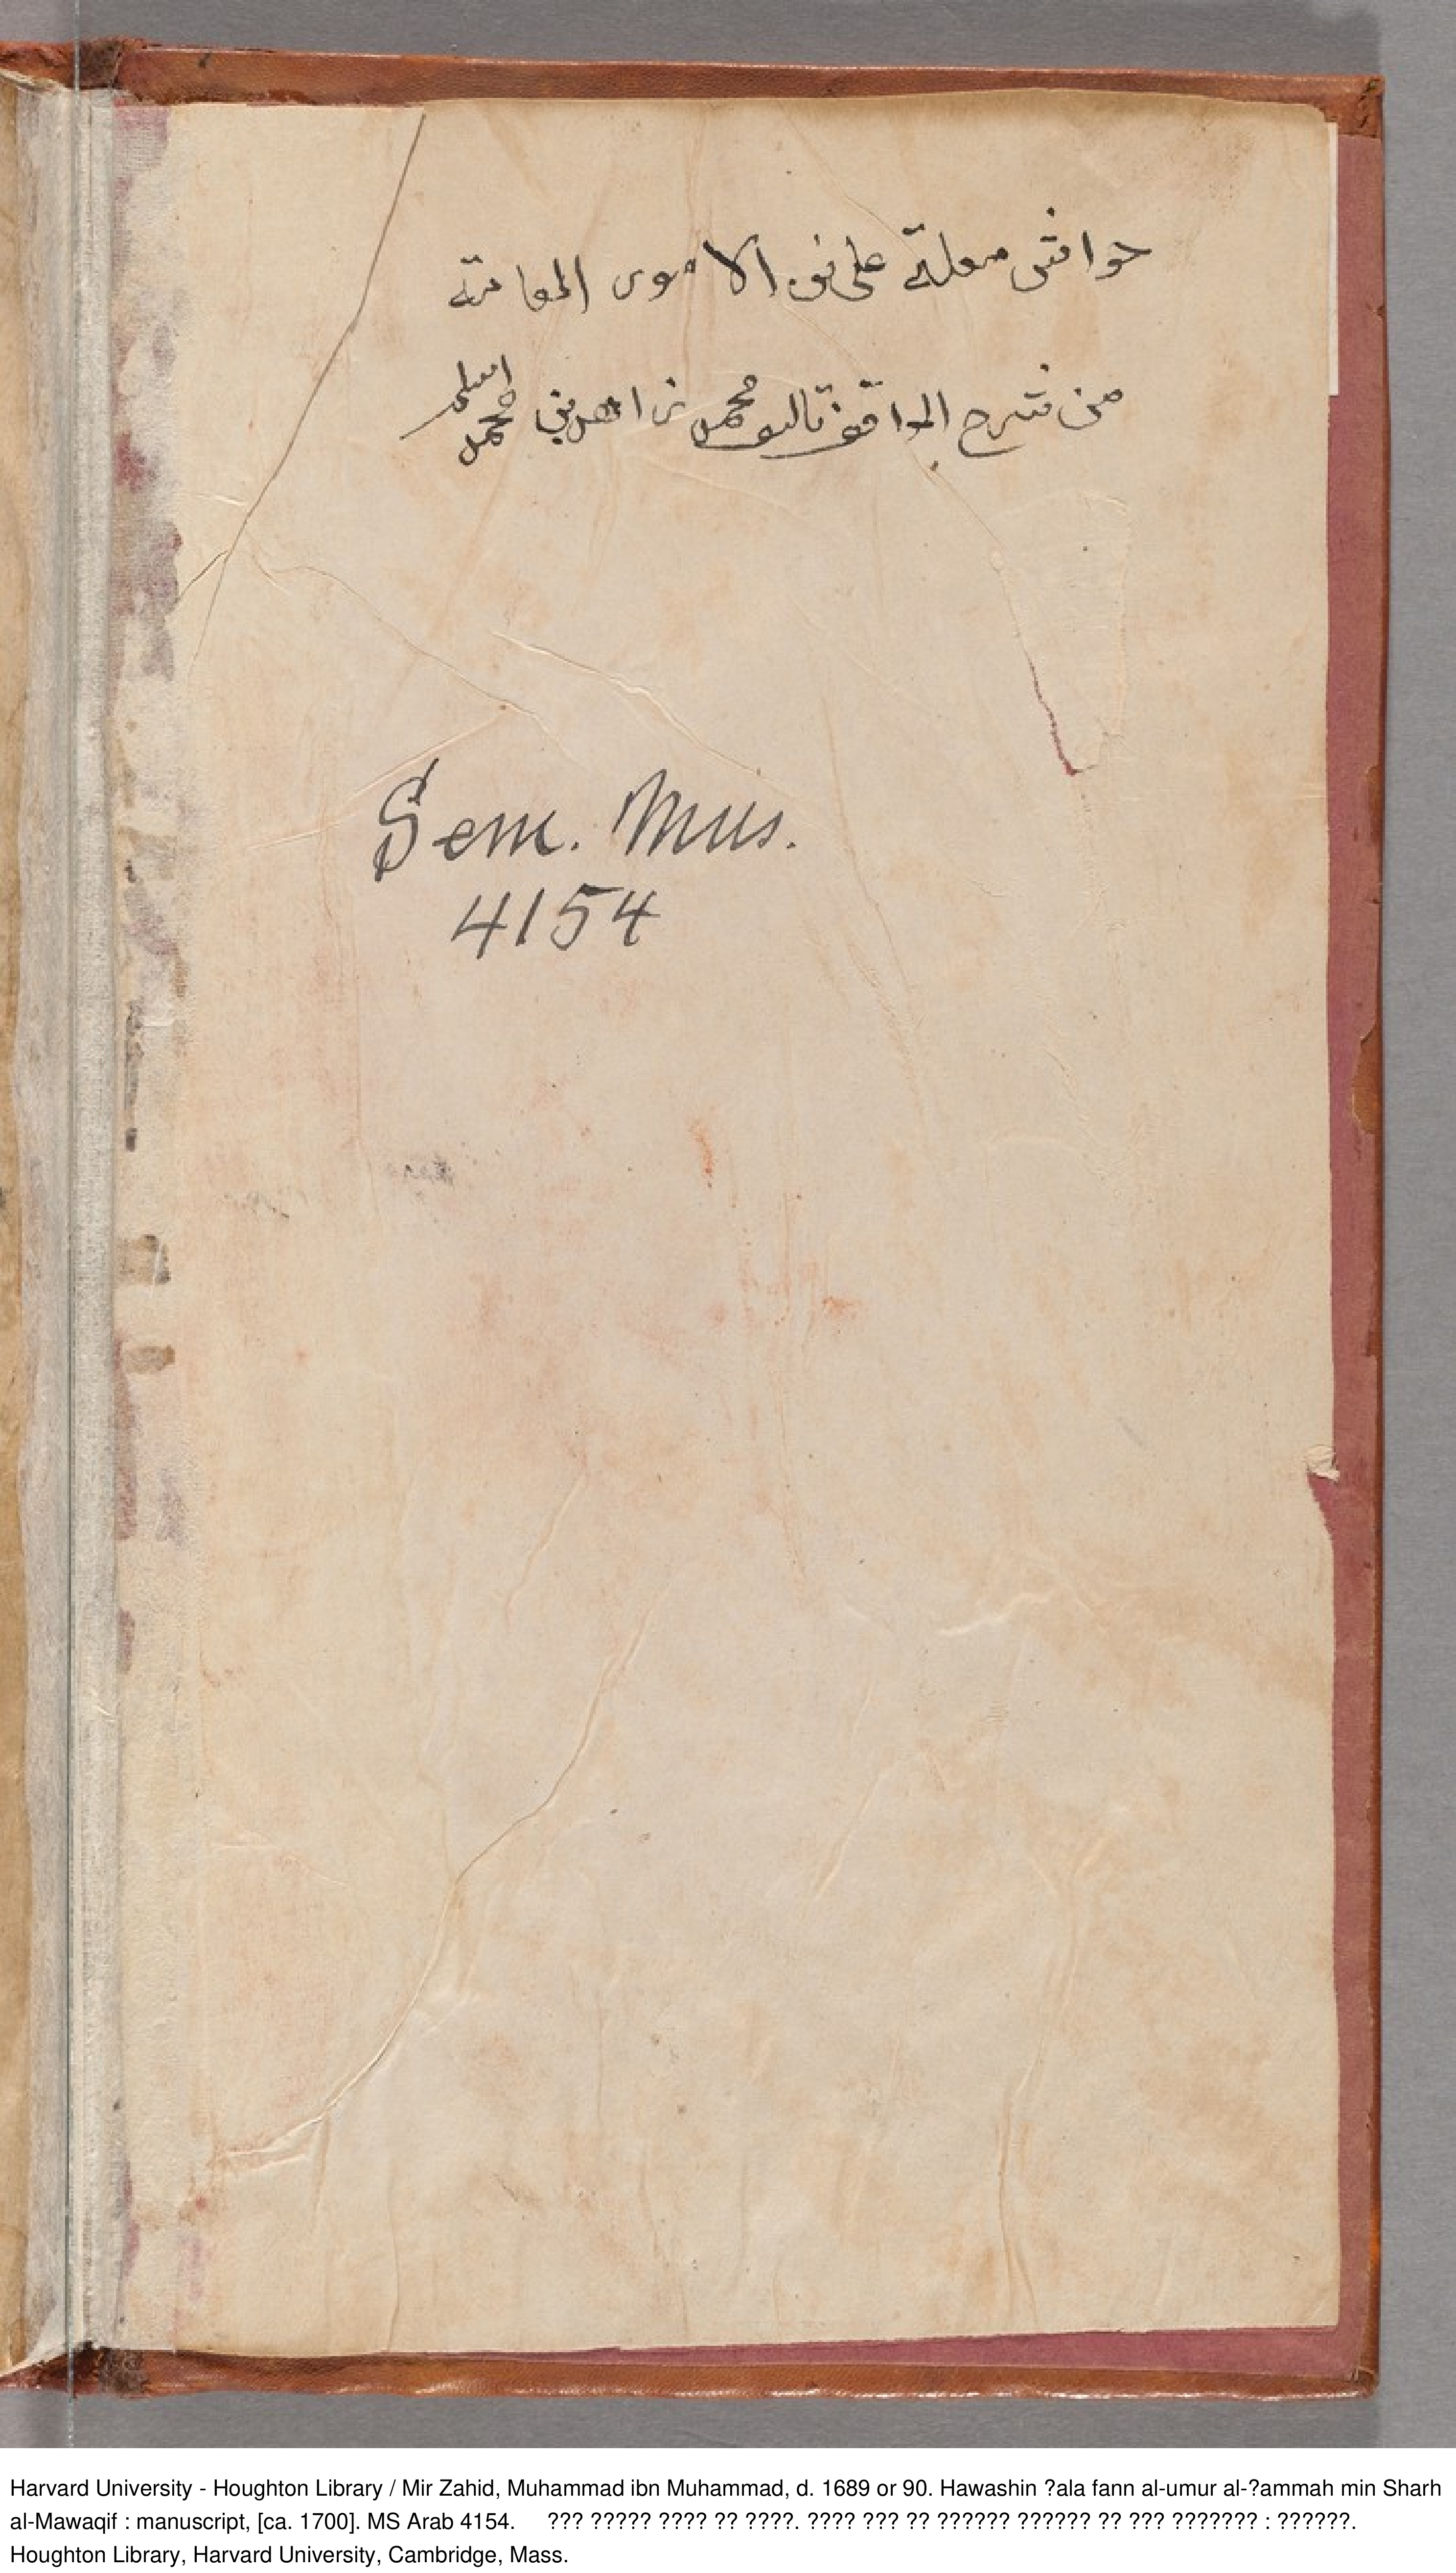 حواشى معلقة على فن الامور العامة
من شرح المواقف تاليف محمد زاهد بن محمد اسلم
Sem. Mus.
4154
Harvard University - Houghton Library / Mir Zahid, Muhammad ibn Muhammad, d. 1689 or 90. Hawashin ?ala fann al-umur al-?ammah min Sharh
al-Mawaqif : manuscript, [ca. 1700]. MS Arab 4154. ??? ????? ???? ?? ????. ???? ??? ?? ?????? ?????? ?? ??? ??????? : ??????.
Houghton Library, Harvard University, Cambridge, Mass.